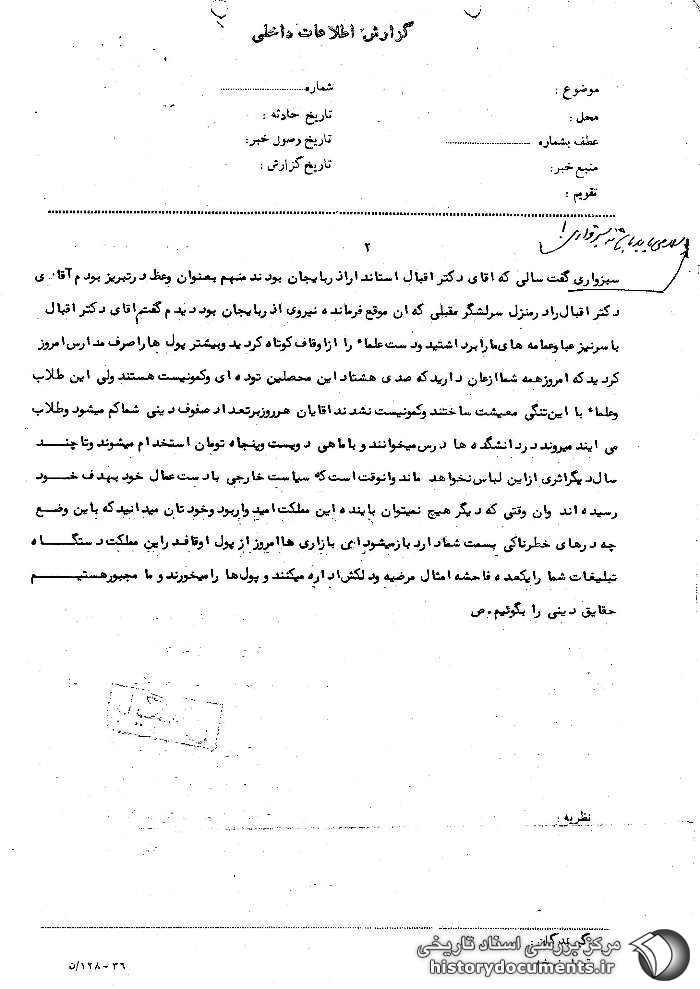 گزارش اطلاعات داخلی
موضوع :
شماره
محل :
تاریخ حادثه :
عطف بشماره
تاریخ وصول خبر:
منبع خبر:
تاریخ گزارش :
تقویم :
۲
سبزواری گفت سالی که اقای دکتر اقبال استاندار اذربایجان بودند منهم بعنوان وعظ در تبریز بودم آقای
دکتر اقبال راد رمنزل سرلشگر مقبلی که ان موقع فرمانده نیروی اذربایجان بود دیدم گفتم اقای دکتر اقبال
باسرنیز عبا وعمامه های مارا برداشتید ودست علماء را ازاوقاف کوتاه کردید وبیشتر پول ها راصرف مدارس امروز
کردید که امروز همه شما ازعان دارید که صدی هشتاد این محصلین توده ای وکمونیست هستند ولی این طلاب
وعلماء با این تنگی معیشت ساختند وکمونیست نشدند اقایان هر روز بر تعداد صفوف دینی شما کم میشود وطلاب
می ایند میروند در دانشگده ها درس میخوانند و با ماهی دویست وپنجاه تومان استخدام میشوند وتا چند
سال دیگر اثری ازاین لباس نخواهد ماند وانوقت است که سیاست خارجی بادست عمال خود بهدف خود
رسیده اند وان وقتی که دیگر هیچ نمیتوان باینده این مملکت امید وار بود وخودتان میدانید که باین وضع
چه درهای خطرناکی بسمت شما دارد باز میشود این بازاری ها امروز از پول اوقافدر این مملکت دستگاه
تبلیغات شما را یکعده فاحشه امثال مرضیه ودلکش اداره میکنند و پول ها را میخورند و ما مجبور هستیم
حقایق دینی را بگوئیم.ص
نظریه :
۳۶-۱۲۸/ن
مرکز بررسی اسناد تاریخی
historydocuments.ir